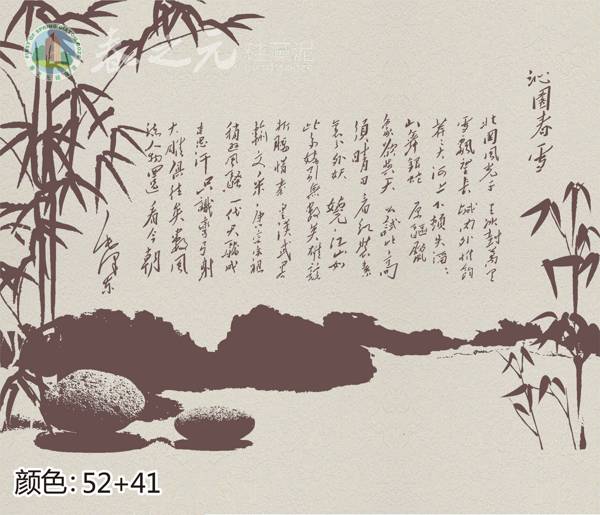 春之元 硅藻泥
沁園春 雪
北国风光千里冰封万里
雪飘望长城内外惟余
莽莽大河上下顿失滔滔
山舞银蛇原驰蜡
象欲与天公试比高
须晴日看红装素
裹分外妖娆江山如
此多娇引无数英雄竞
折腰惜秦皇汉武略
输文采唐宗宋祖
稍逊风骚一代天骄成
吉思汗只识弯弓射
大雕俱往矣数风
流人物还看今朝
毛泽东
颜色: 52+41